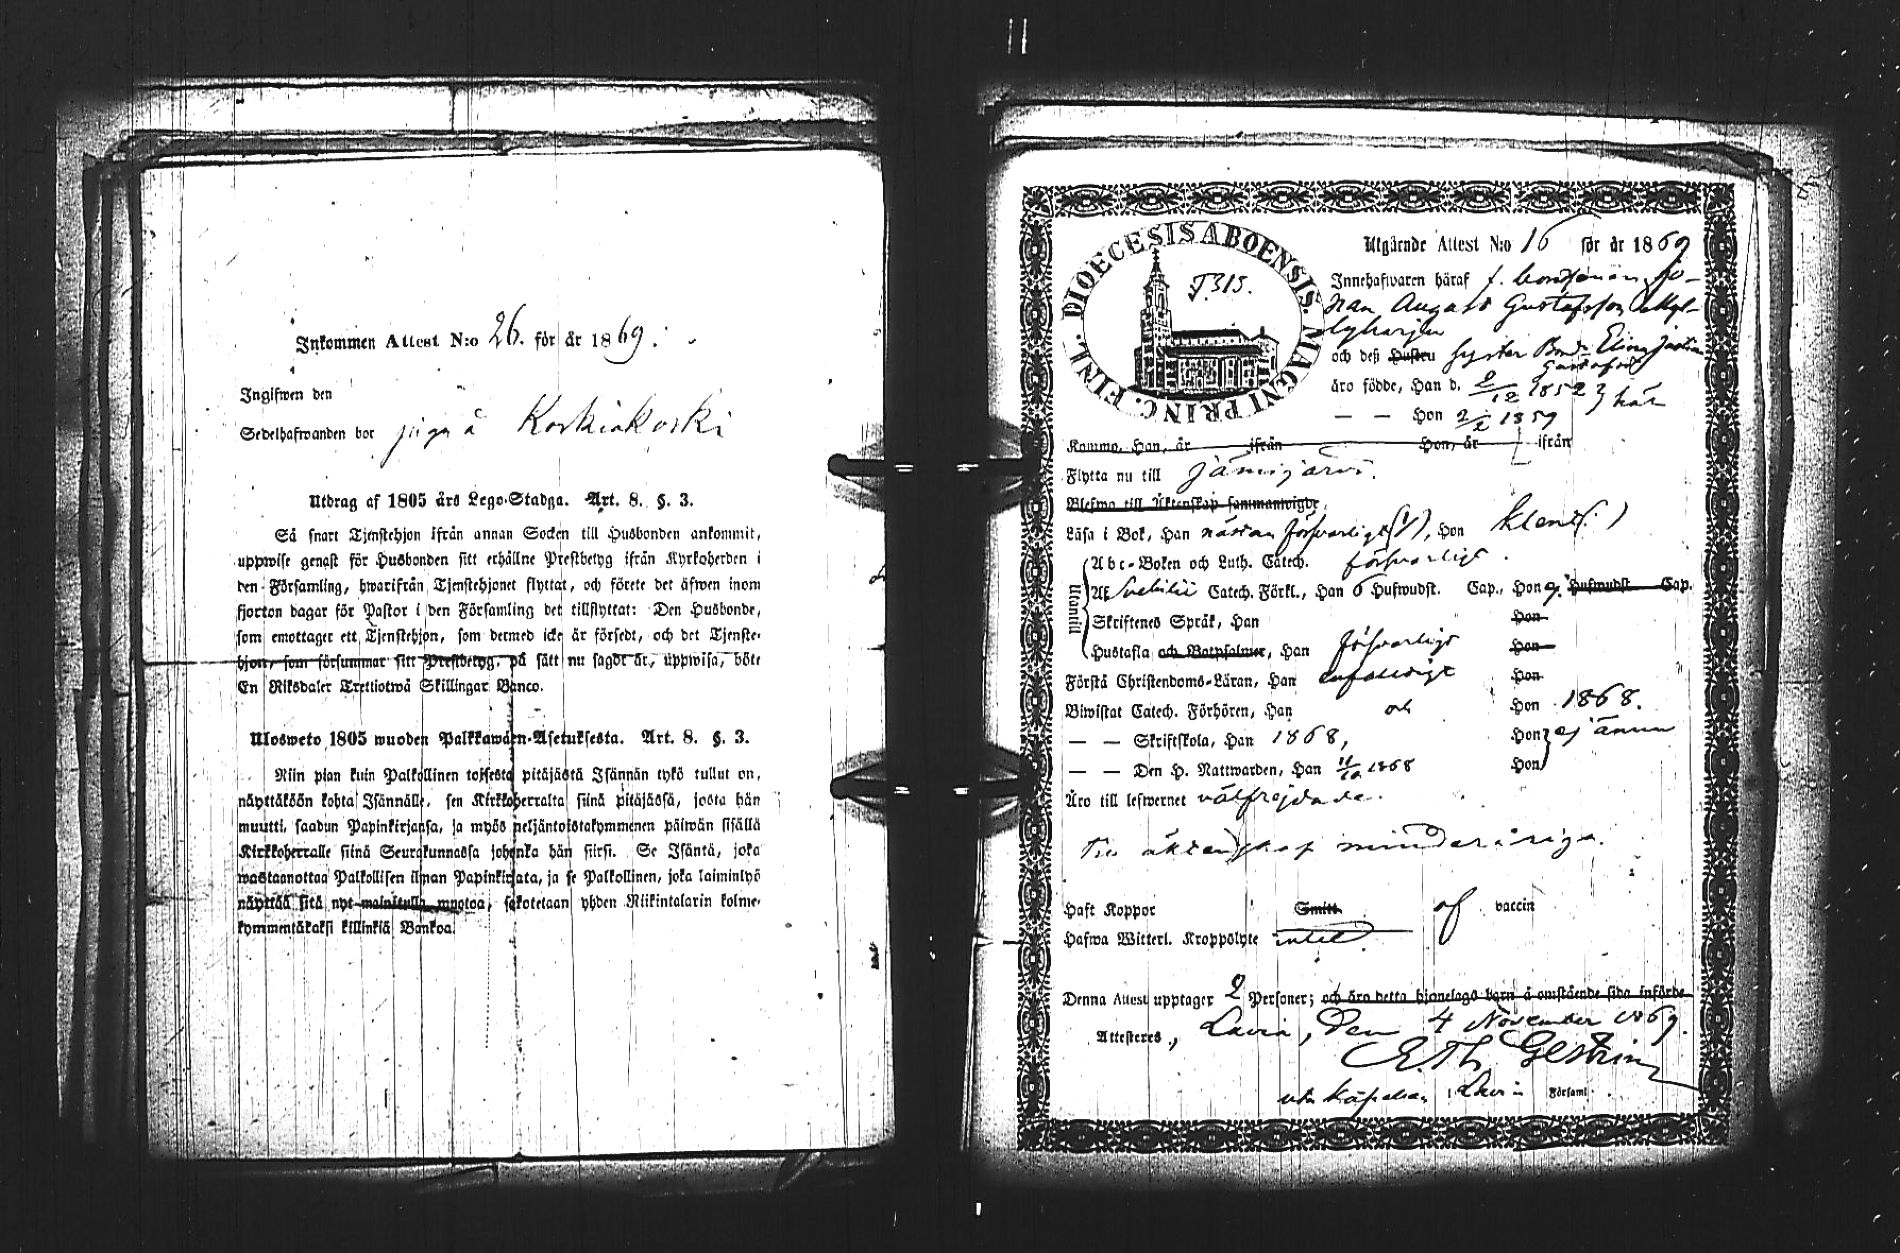 Inkommen Attest N:o 26. för år 1869.
Ingifwen den
Sedelhafwanden bor på Koskiakoski
Utdrag af 1805 års Lego-Stadga. Art. 8. §. 3.
Så snart Tjenstehjon ifrån annan Socken till Husbonden ankommit,
uppwise genast för Husbonden sitt erhållne Prestbetyg ifrån Kyrkoherden i
den Församling, hwarifrån Tjenstehjonet flyttat, och förete det äfwen inom
fjorton dagar för Pastor i den Församling det tillflyttat: Den Husbonde,
som emottager ett Tjenstehjon, som dermed icke är försedt, och det Tjenste-
hjon, som försummar sitt Prestbetyg, på sätt nu sagdt är, uppwisa, böte
En Riksdaler Trettiotwå Skillingar Banco.
Ulosweto 1805 wuoden Palkkawäen-Asetuksesta. Art. 8. §. 3.
Niin pian kuin Palkollinen toisesta pitäjästä Isännän tykö tullut on,
näyttäköön kohta Isännälle, sen Kirkkoherralta siinä pitäjässä, josta hän
muutti, saadun Papinkirjansa, ja myös neljäntoistakymmenen päiwän sisällä
Kirkkoherralle siinä Seurakunnassa johonka hän siirsi. Se Isäntä, joka
wastaanottaa Palkollisen ilman Papinkirjata, ja se Palkollinen, joka laiminlyö
näyttää sitä nyt mainitulla muotoa, sakotetaan yhden Riikintalarin kolme-
kymmentäkaksi killinkiä Bankoa.
DIOECESIS ABOENSIS. MAGNI PRINC. FINL.
T.315.
Utgående Attest N:o 16 för år 1869
Innehafwaren häraf f. bondsonen Jo-
han August Gustafsson
och deß Hustru syster Elina
äro födde, Han d. 2/12 1852 } här
— — Hon 2/2 1859
Komma, Han, år ifrån Hon, år ifrån
Flytta nu till Jämijärvi.
Blefwo till Äktenskap sammanwigde
Läsa i Bok, Han nästan försvarligt, Hon klent
Utantill
Abc-Boken och Luth. Catech. försvarligt.
Af Svebilii Catech. Förkl., Han 6 Hufwudst. Cap., Hon Hufwudst. Cap.
Skriftenes Språk, Han Hon
Hustafla och Botpsalmer, Han försvarligt Hon
Förstå Christendoms-Läran, Han enfaldigt Hon
Biwistat Catech. Förhören, Han och Hon 1868.
— — Skriftskola, Han 1868, Hon } ej ännu
— — Den H. Nattwarden, Han 11/10 1868 Hon
Äro till lefwernet välfrejdade.
Till äktenskap minderåriga.
Haft Koppor Smitt. af vaccin
Hafwa Witterl. Kroppslyte intet.
Denna Attest upptager 2 Personer; och äro detta hjonelags barn å omstående sida införde
Attesteres, Lavia, Den 4 November 1869.
Gestrin
Kapellan i Lavia Församl.